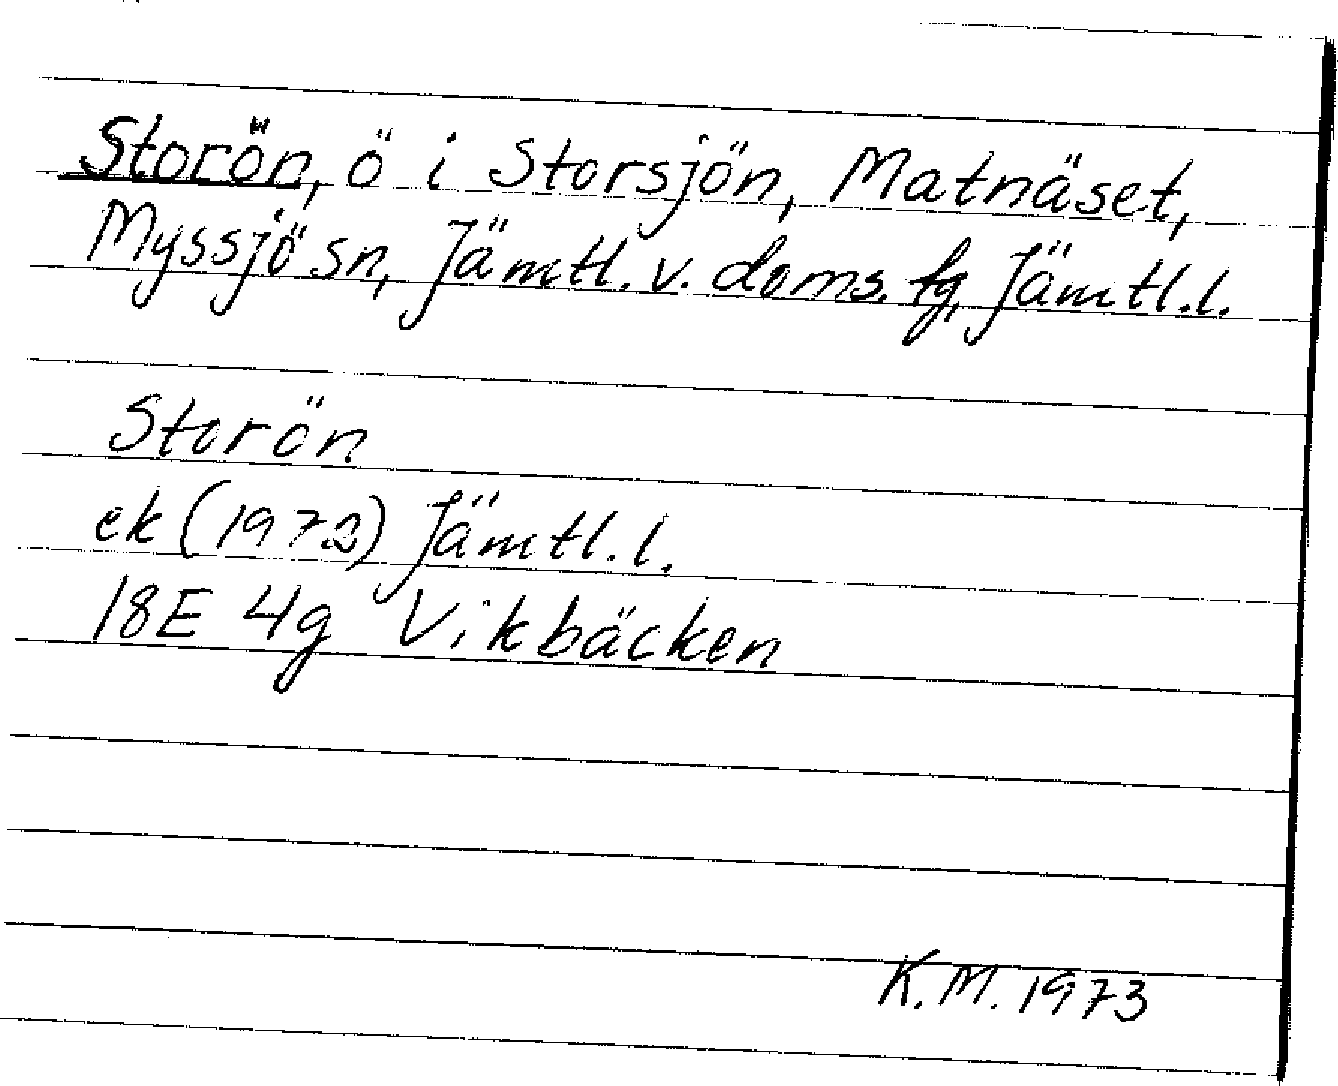 Storön, ö i Storsjön, Matnäset,
Myssjö sn, Jämtl. v. doms. fg, Jämtl. l.
Storön
ek (1972) Jämtl. l.
18E 4g Vikbäcken
K. M. 1973